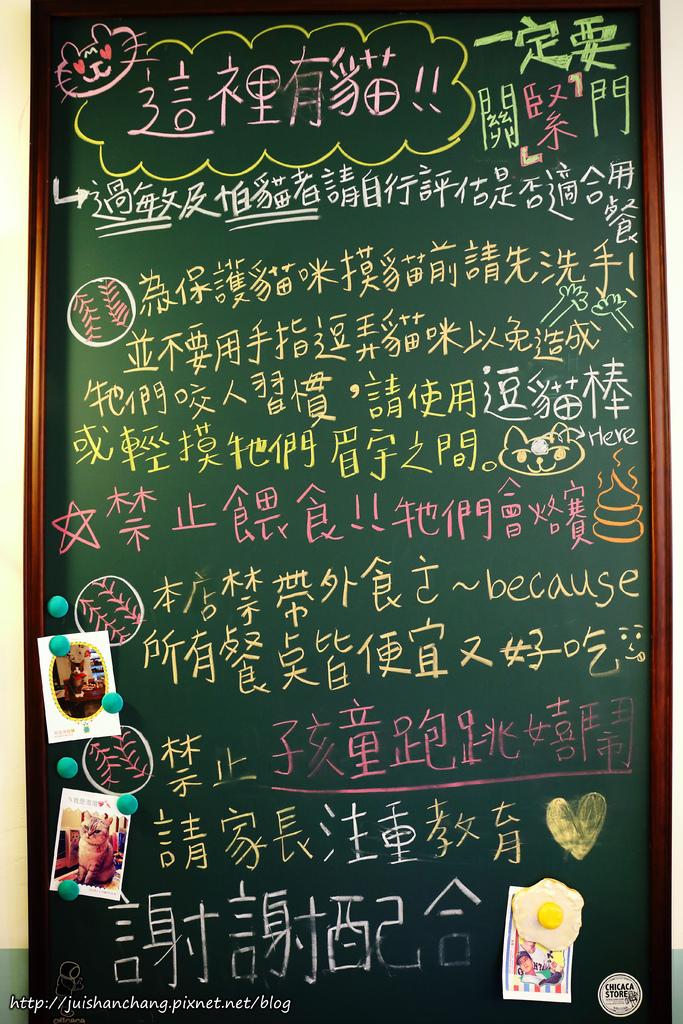 這裡有貓!!
一定要
關「緊」門
過敏及怕貓者請自行評估是否適合用餐
為保護貓咪摸貓前請先洗手!
並不要用手指逗弄貓咪以免造成
牠們咬人習慣,請使用逗貓棒
Here
或輕摸牠們眉宇之間。
禁止餵食!!牠們會烙賽
本店禁帶外食~because
所有餐點皆便宜又好吃
禁止孩童跑跳嬉鬧
請家長注重教育
謝謝配合
CHICACA
STORE
http://juishanchang.pixnet.net/blog